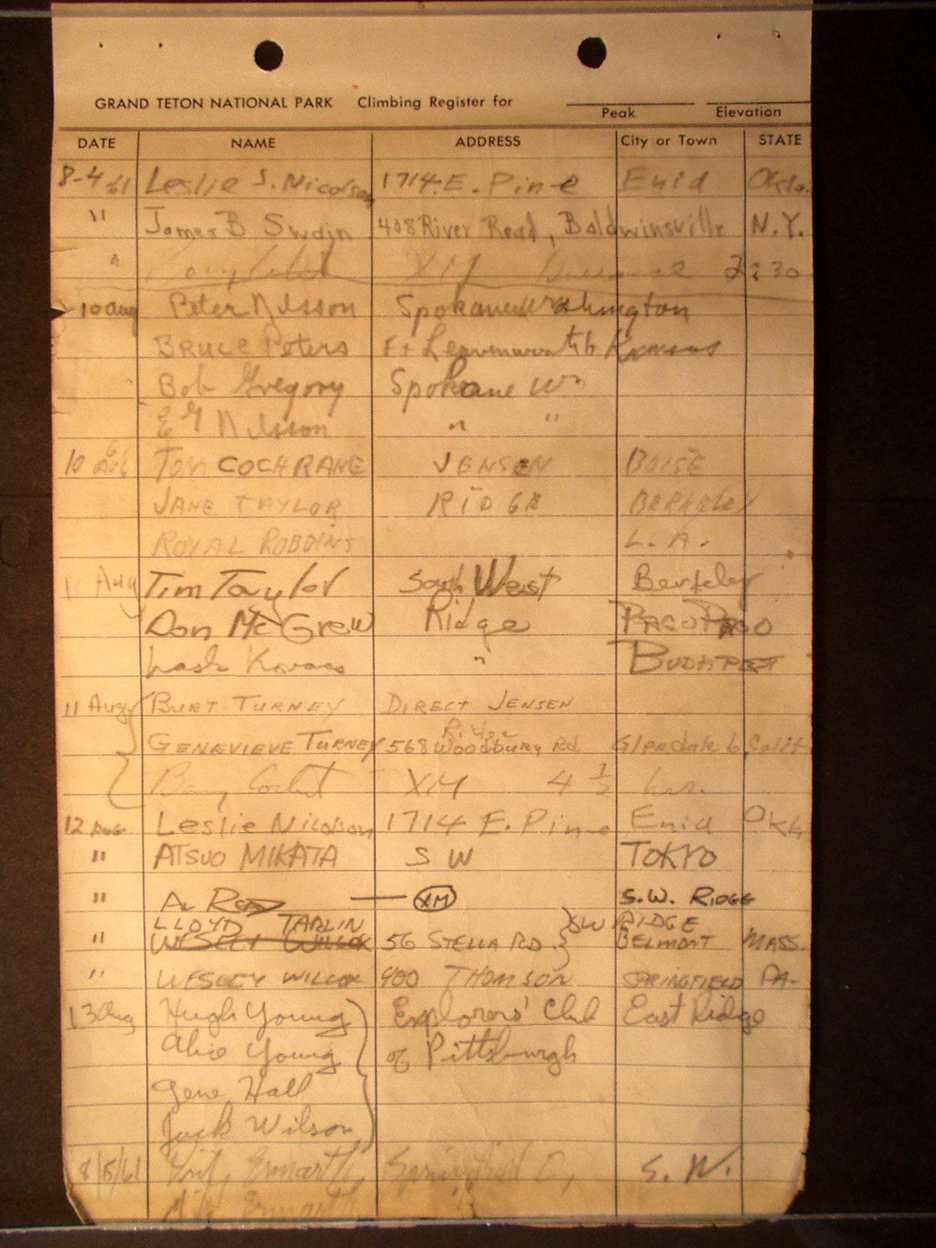 GRAND TETON NATIONAL PARK Climbing Register for
Peak Elevation
DATE NAME ADDRESS City or Town STATE
8-4 61 Leslie S. Nicolson 1714 E. Pine Enid Okla.
" James B Swain 408 River Road, Baldwinsville N.Y.
" XM 2:30
10 Aug Peter Nilsson Spokane Washington
Bruce Peters Ft Leavenworth Kansas
Bob Gregory Spokane Wn
Nilsson " "
10 TOM COCHRANE JENSEN BOISE
JANE TAYLOR RIDGE BERKELEY
ROYAL ROBBINS L.A.
11 Aug Tim Taylor South West Berkeley
Don McGrew Ridge PAGO PAGO
Kovacs " BUDAPEST
11 Aug BURT TURNEY DIRECT JENSEN
Ridge
GENEVIEVE TURNEY 568 Woodbury Rd. Glendale 6, Calif
XM 4 1/2 hrs.
12 Aug Leslie Nicolson 1714 E. Pine Enid Okla
" ATSUO MIKATA S W TOKYO
" — XM S.W. RIDGE
LLOYD TARLIN SW RIDGE
" WESLEY WILLCOX 56 STELLA RD. BELMONT MASS.
" WESLEY WILLCOX 900 THOMSON SPRINGFIELD PA.
13 Aug Hugh Young Explorers' Club East Ridge
Alice Young of Pittsburgh
Gene Hall
Jack Wilson
8/5/61 Ermarth, Springfield O, S. W.
Ermarth "